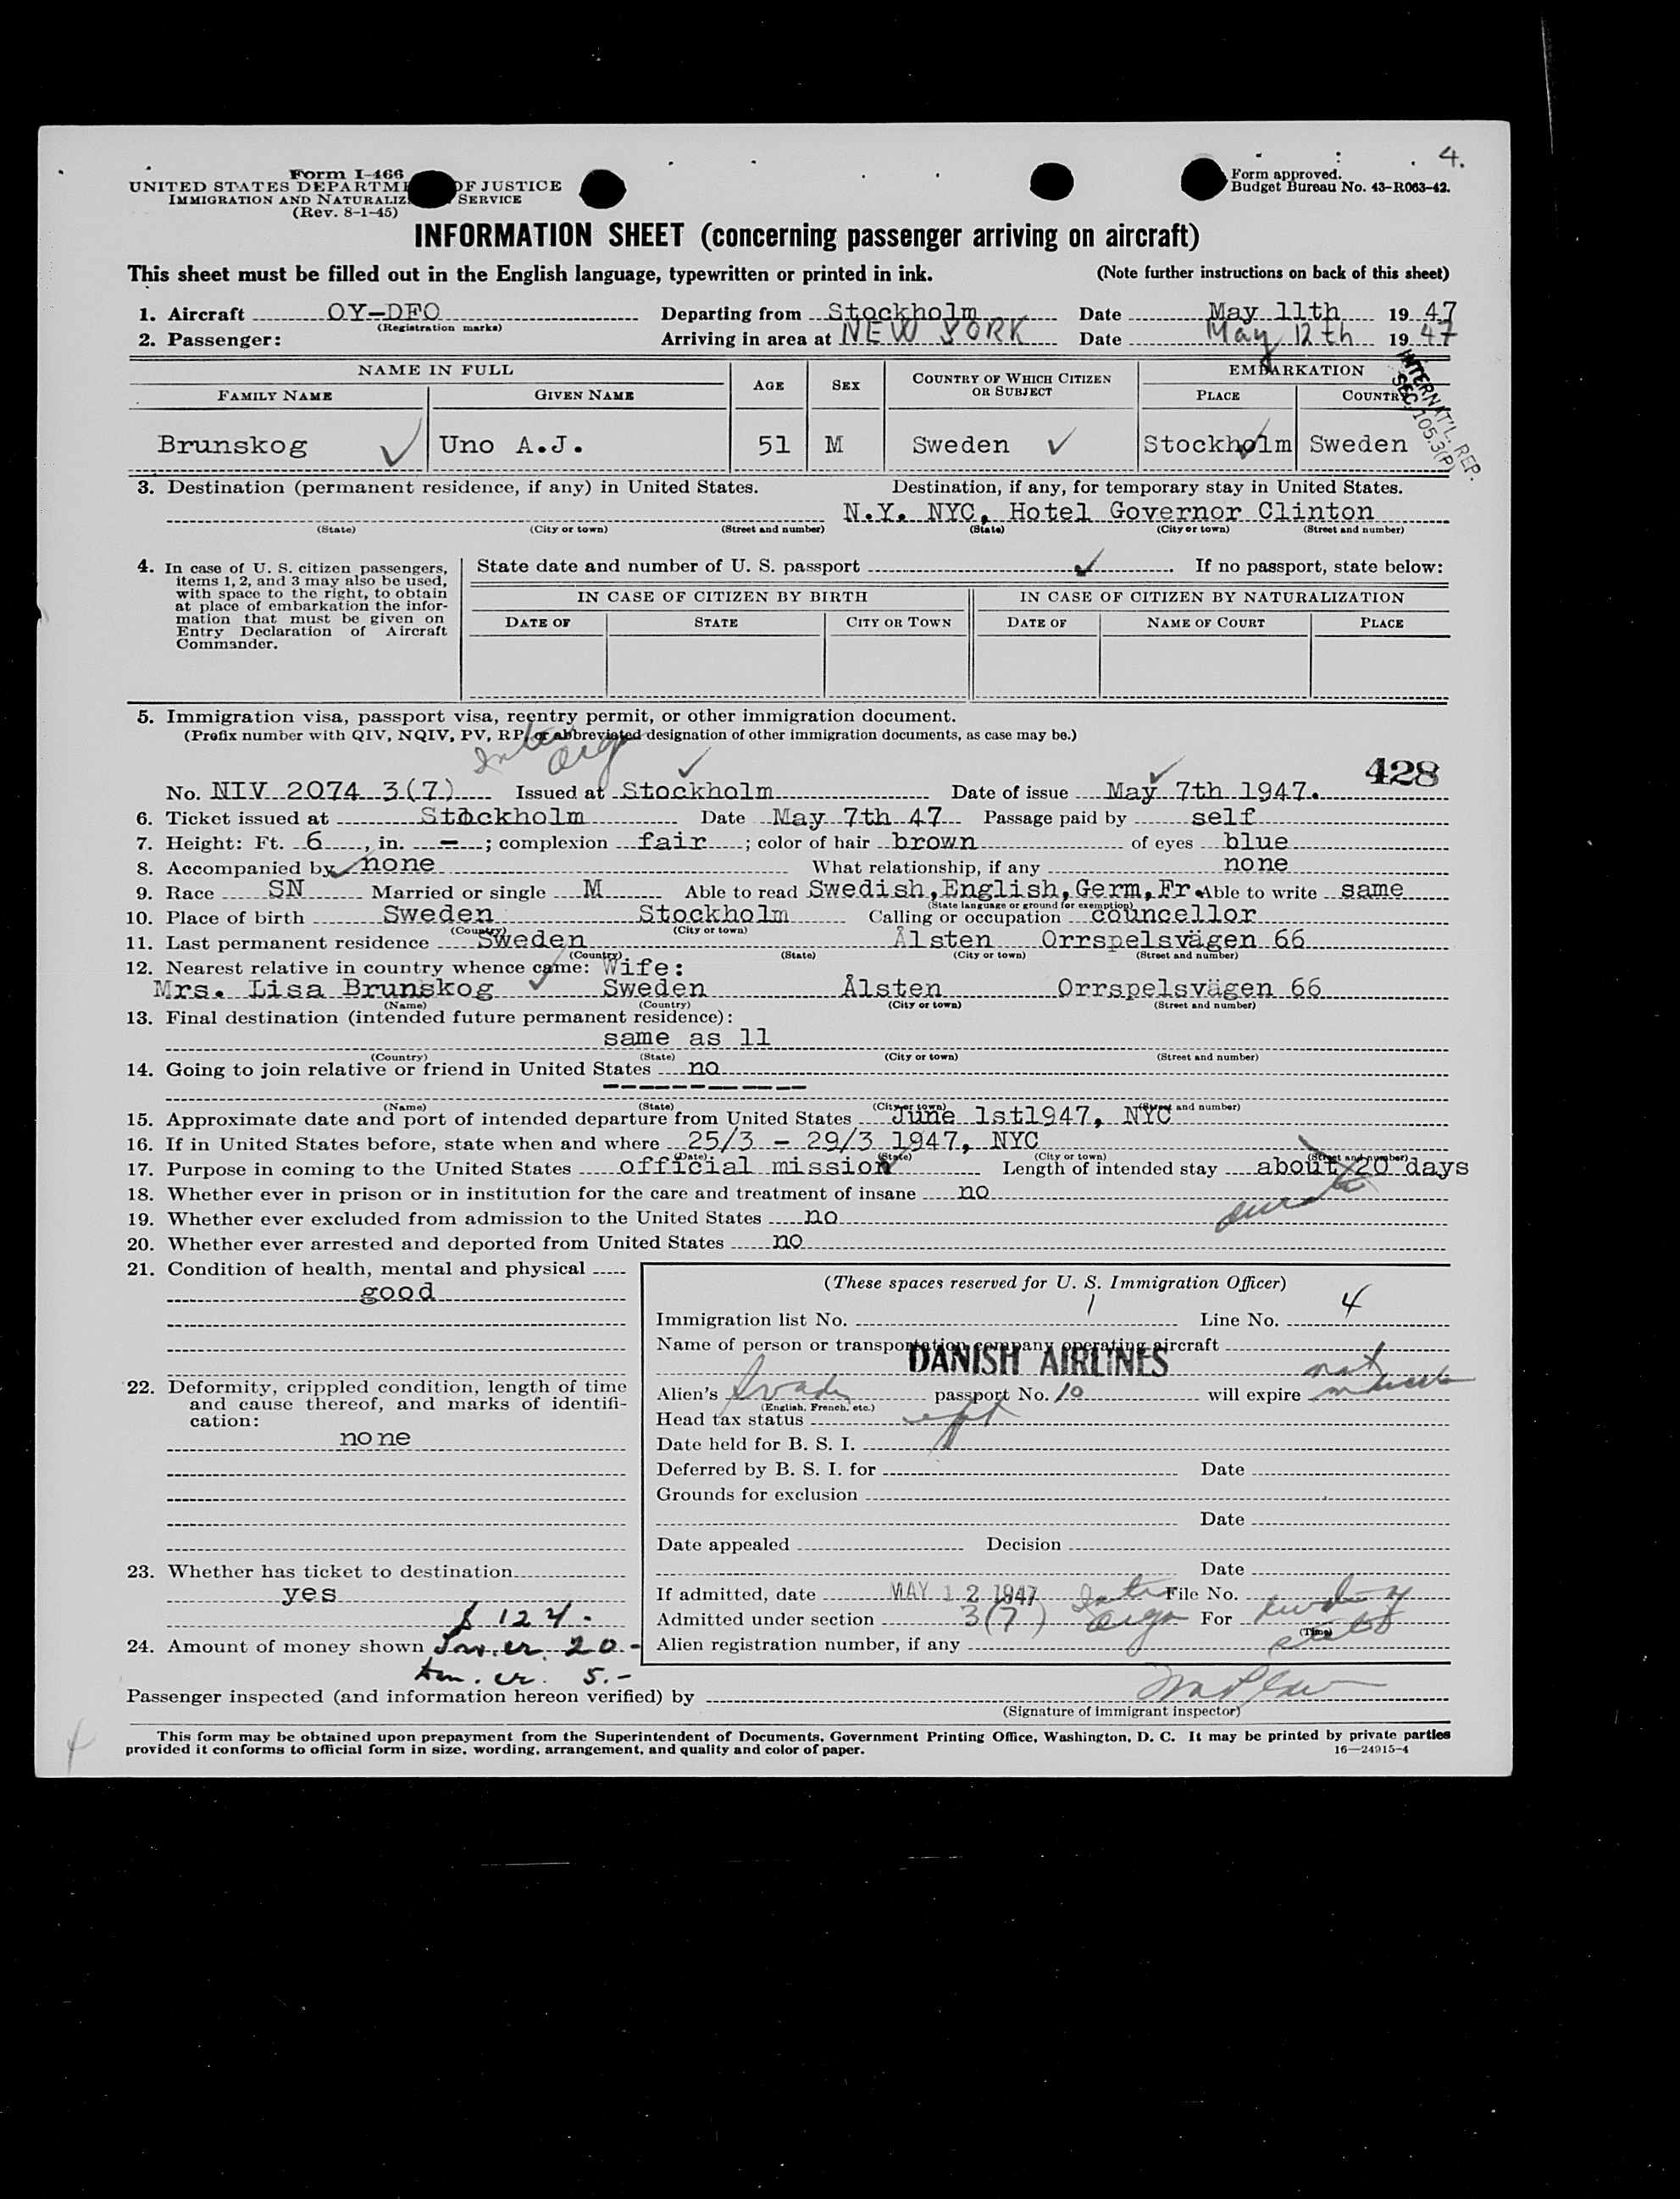 4.
Form I-466
UNITED STATES DEPARTMENT OF JUSTICE
IMMIGRATION AND NATURALIZATION SERVICE
(Rev. 8-1-45)
Form approved.
Budget Bureau No. 43-R063-42.
INFORMATION SHEET (concerning passenger arriving on aircraft)
This sheet must be filled out in the English language, typewritten or printed in ink. (Note further instructions on back of this sheet)
1. Aircraft OY-DFO Departing from Stockholm Date May 11th 1947
(Registration marks)
2. Passenger: Arriving in area at NEW YORK Date May 12th 1947
NAME IN FULL AGE SEX COUNTRY OF WHICH CITIZEN OR SUBJECT EMBARKATION
FAMILY NAME GIVEN NAME PLACE COUNTRY
INTERNAT'L. REP.
SEC. 105.3(P)
Brunskog Uno A.J. 51 M Sweden Stockholm Sweden
3. Destination (permanent residence, if any) in United States. Destination, if any, for temporary stay in United States.
N.Y. NYC, Hotel Governor Clinton
(State) (City or town) (Street and number) (State) (City or town) (Street and number)
4. In case of U. S. citizen passengers,
items 1, 2, and 3 may also be used,
with space to the right, to obtain
at place of embarkation the infor-
mation that must be given on
Entry Declaration of Aircraft
Commander.
State date and number of U. S. passport If no passport, state below:
IN CASE OF CITIZEN BY BIRTH IN CASE OF CITIZEN BY NATURALIZATION
DATE OF STATE CITY OR TOWN DATE OF NAME OF COURT PLACE
5. Immigration visa, passport visa, reentry permit, or other immigration document.
(Prefix number with QIV, NQIV, PV, RP, or abbreviated designation of other immigration documents, as case may be.)
Inter
Orgn
428
No. NIV 2074 3(7) Issued at Stockholm Date of issue May 7th 1947.
6. Ticket issued at Stockholm Date May 7th 47 Passage paid by self
7. Height: Ft. 6, in. -; complexion fair; color of hair brown of eyes blue
8. Accompanied by none What relationship, if any none
9. Race SN Married or single M Able to read Swedish,English,Germ,Fr. Able to write same
(State language or ground for exemption)
10. Place of birth Sweden Stockholm Calling or occupation councellor
(Country) (City or town)
11. Last permanent residence Sweden Ålsten Orrspelsvägen 66
(Country) (State) (City or town) (Street and number)
12. Nearest relative in country whence came: Wife:
Mrs. Lisa Brunskog Sweden Ålsten Orrspelsvägen 66
(Name) (Country) (City or town) (Street and number)
13. Final destination (intended future permanent residence):
same as 11
(Country) (State) (City or town) (Street and number)
14. Going to join relative or friend in United States no
(Name) (State) (City or town) (Street and number)
15. Approximate date and port of intended departure from United States June 1st1947, NYC
16. If in United States before, state when and where 25/3 - 29/3 1947, NYC
(Date) (State) (City or town) (Street and number)
17. Purpose in coming to the United States official mission Length of intended stay about 20 days
18. Whether ever in prison or in institution for the care and treatment of insane no
19. Whether ever excluded from admission to the United States no
20. Whether ever arrested and deported from United States no
21. Condition of health, mental and physical
good
22. Deformity, crippled condition, length of time
and cause thereof, and marks of identifi-
cation:
none
23. Whether has ticket to destination
yes
$ 124.-
24. Amount of money shown Sw. cr. 20.-
5.-
(These spaces reserved for U. S. Immigration Officer)
Immigration list No. 1 Line No. 4
Name of person or transportation company operating aircraft
DANISH AIRLINES
Alien's passport No. 10 will expire
(English, French, etc.)
Head tax status
Date held for B. S. I.
Deferred by B. S. I. for Date
Grounds for exclusion
Date
Date appealed Decision
Date
If admitted, date MAY 12 1947 File No.
Admitted under section 3(7) Inter Orgn For
(Time)
Alien registration number, if any
Passenger inspected (and information hereon verified) by
(Signature of immigrant inspector)
This form may be obtained upon prepayment from the Superintendent of Documents, Government Printing Office, Washington, D. C. It may be printed by private parties
provided it conforms to official form in size, wording, arrangement, and quality and color of paper. 16—24915-4